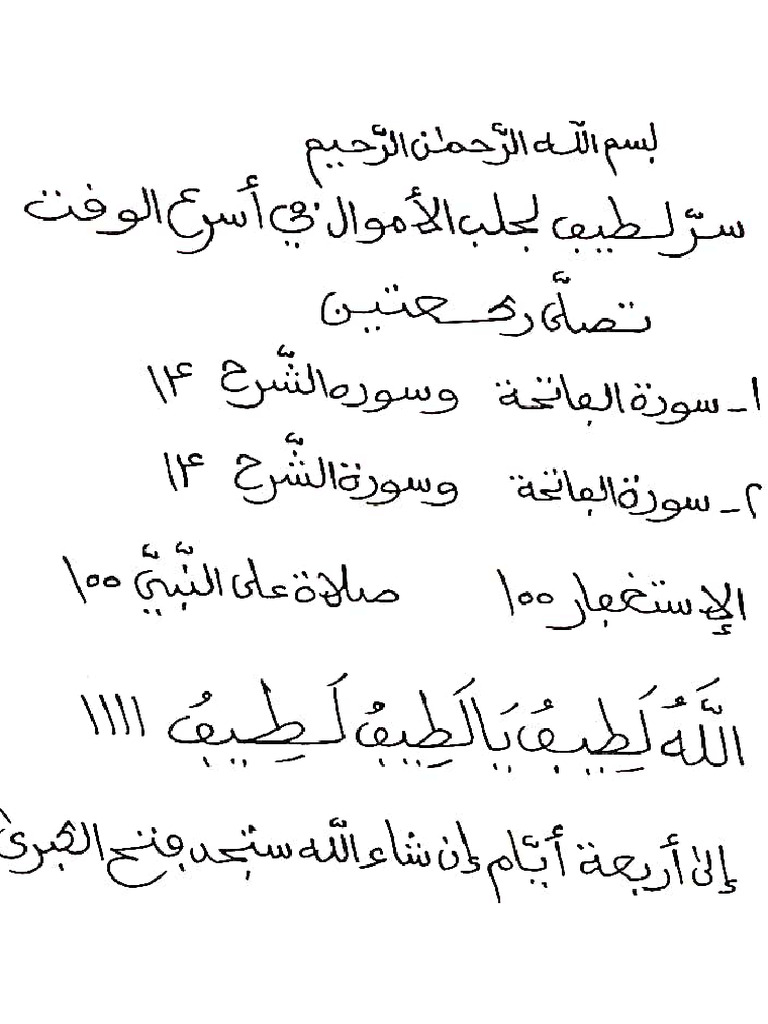 بسم الله الرّحمٰن الرّحيم
سرّ لطيف لجلب الأموال في أسرع الوقت
تصلّى ركعتين
١ـ سورة الفاتحة وسوره الشّرح ١۴
٢ـ سورة الفاتحة وسورة الشّرح ١۴
الإستغفار ١٠٠ صلاة على النّبيّ ١٠٠
اللَّهُ لَطِيفُ يَا لَطِيفُ لَطِيفُ ١١١١
إلىٰ أربعة أيّام إن شاء اللّه ستجد فتح الكبرىٰ